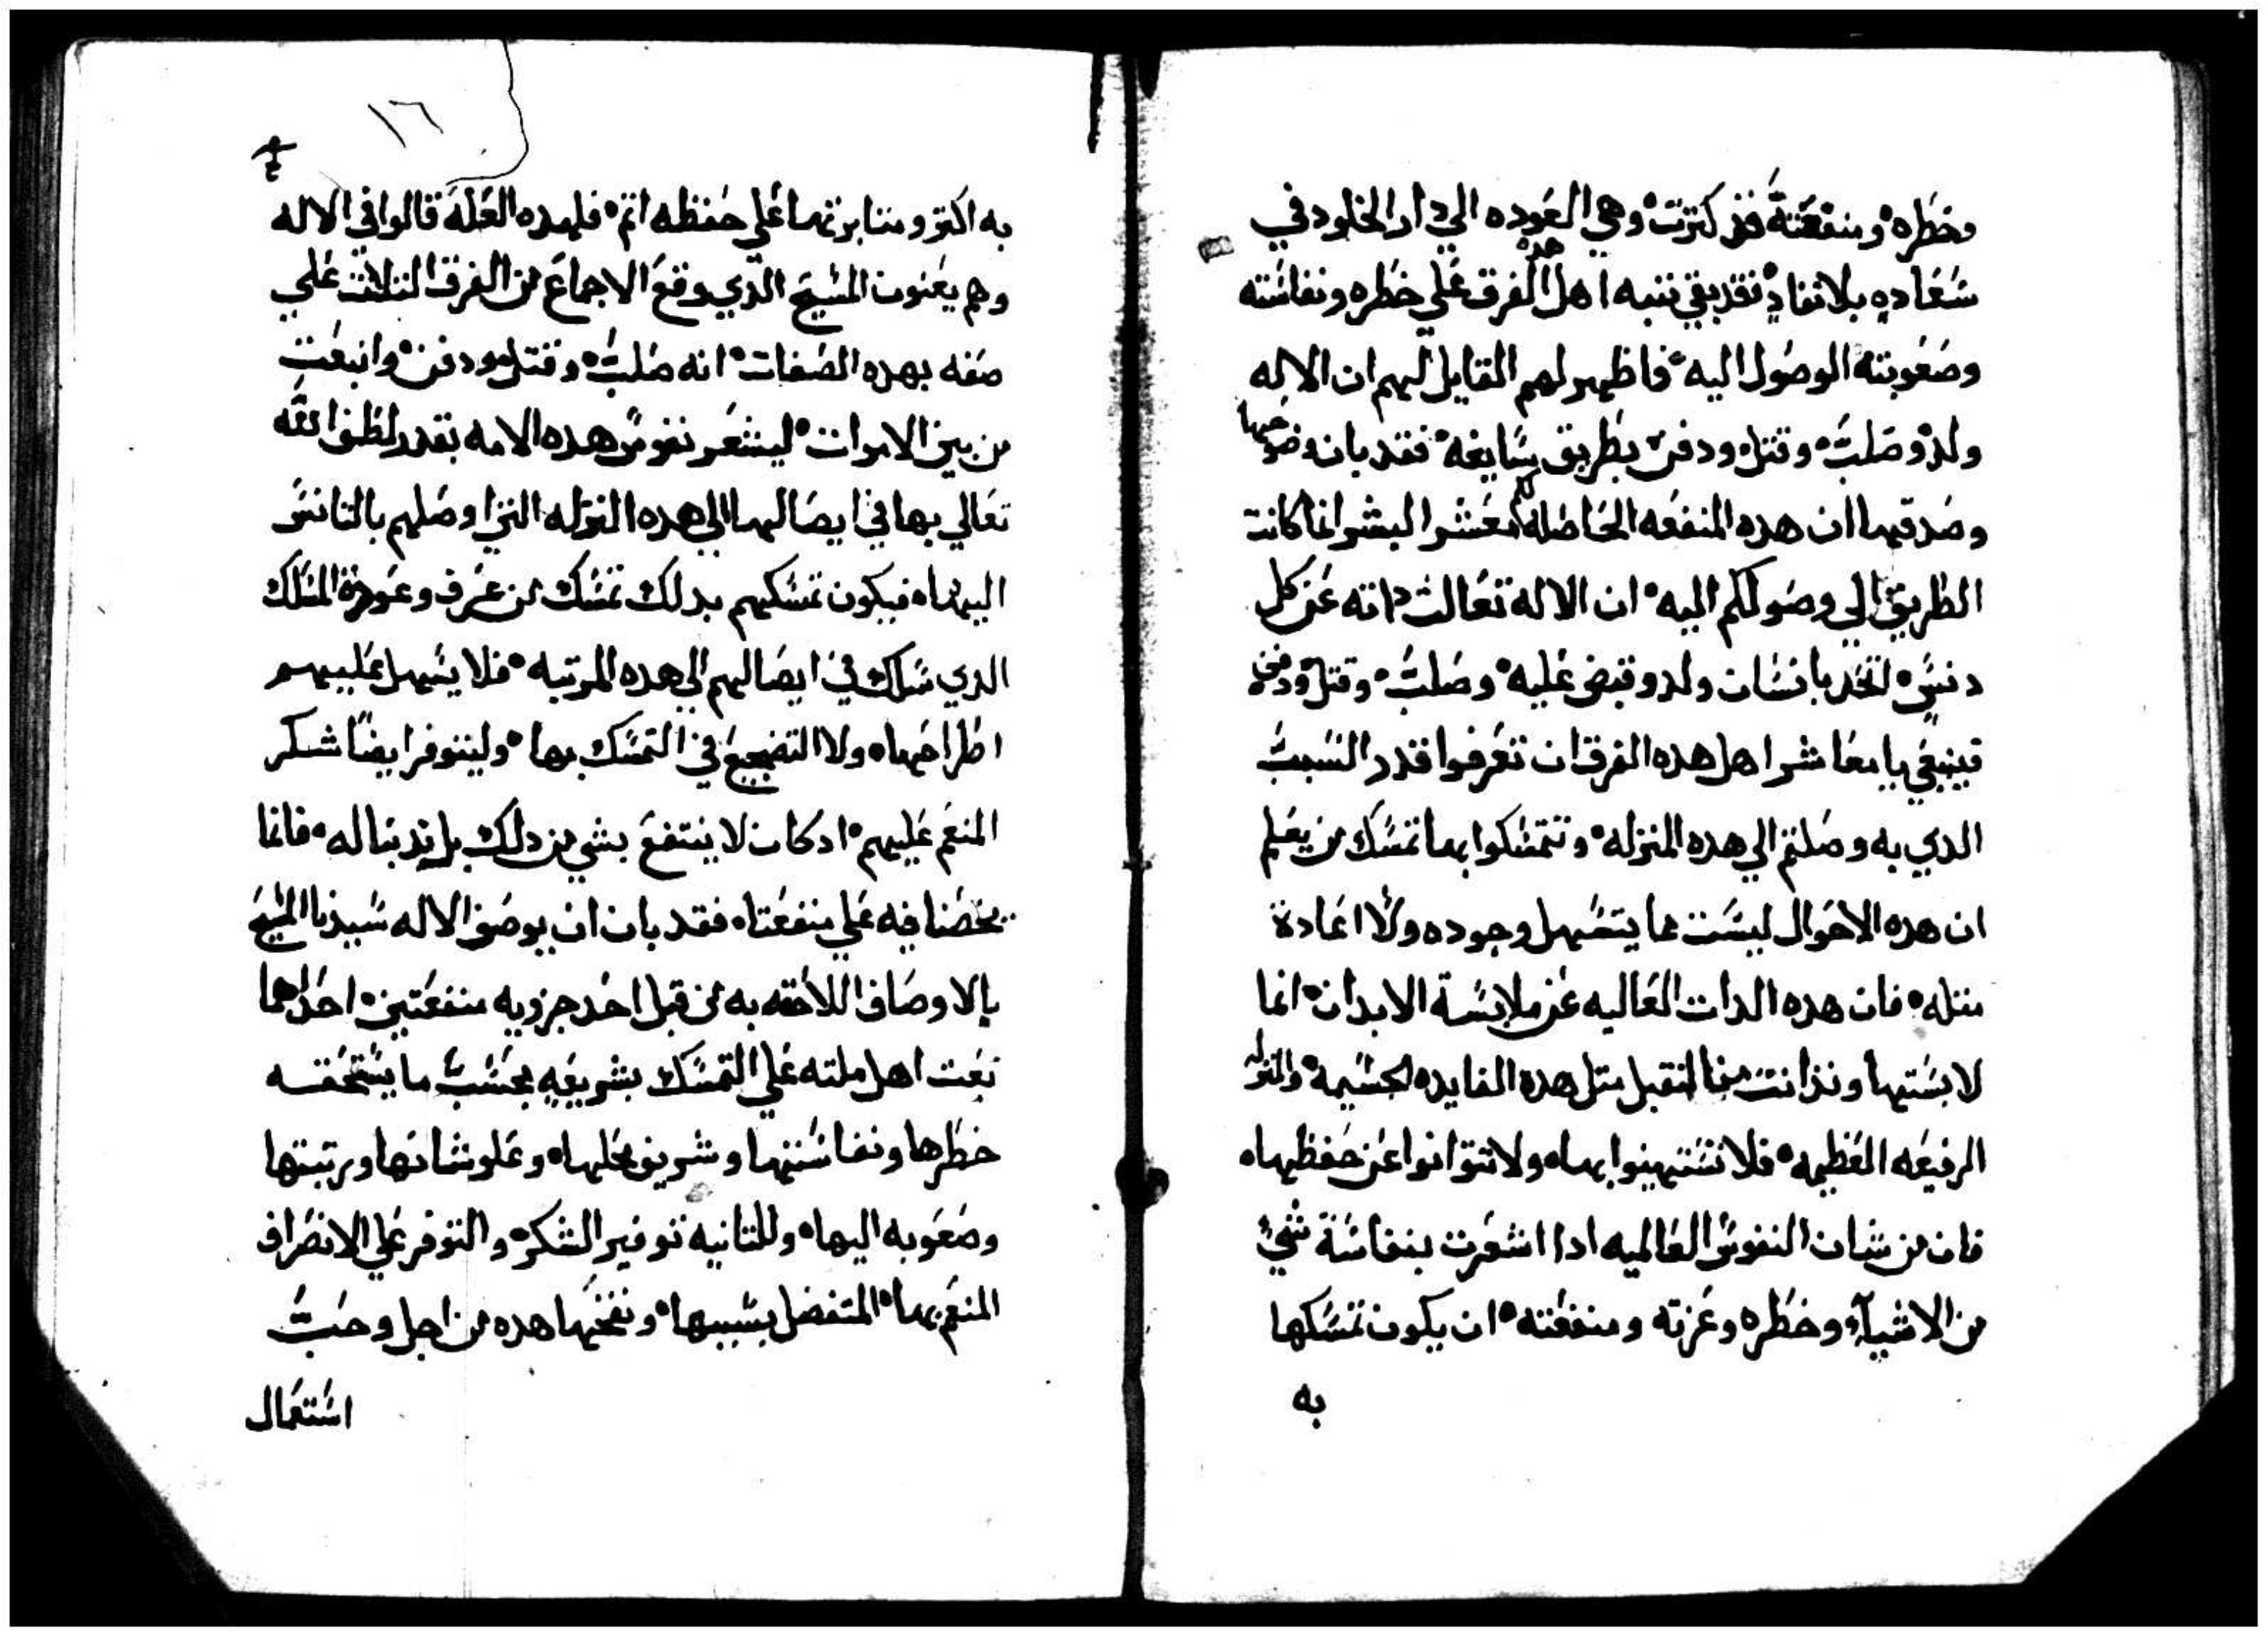 وخطره ومنفعته فقد كترت وهي العوده الي دار الخلود في
سعاده بلا نفاد فقد بقي تنبه اهل هده الفرق علي خطره ونفاسته
وصعوبته الوصول اليه فاظهر لهم القايل لهم ان الاله
ولد وصلب وقتل ودفن بطريق سايغه فقد بان وضوحها
وصدقها ان هده المنفعه الحاصله لمعشر البشر انما كانت
الطريق الي وصولكم اليه ان الاله تعالت داته عن كل
دنس اتحد بانسان ولد وقبض عليه وصلب وقتل ودفن
فينبغي يا معاشر اهل هده الفرق ان تعرفوا قدر السبب
الدي به وصلتم الي هده المنزله وتتمسكوا بها تمسك من يعلم
ان هده الاحوال ليست مما يتسهل وجوده ولا اعادة
متله فان هده الدات العاليه عن ملابسة الابدان انما
لابستها وندانت منا لتقبل متل هده الفايده الجسيمه والمنزله
الرفيعه العظيمه فلا تستهينوا بها ولا تتوانوا عن حفظها
فان من شان النفوس العالميه ادا اشعرت بنفاسة شي
من الاشيآء وخطره وعزته ومنفعته ان يكون تمسكها
به
١٦
به اكتر ومتابرتها علي حفظه اتم فلهده العله قالوا في الاله
وهم يعنون المسيح الدي وقع الاجماع من الفرق التلات علي
صفه بهده الصفات انه صلب وقتل ودفن وانبعت
من بين الاموات ليشعر نفوس هده الامه بقدر لطف الله
تعالي بها في ايصالها الي هده المنزله التي اوصلهم بالتانس
اليها فيكون تمسكهم بدلك تمسك من عرف وعورة المسلك
الدي سلك في ايصالهم الي هده المرتبه فلا يسهل عليهم
اطراحها ولا التضجيع في التمسك بها وليتوفر ايضا شكر
المنعم عليهم ادكان لا ينتفع بشي من دلك بل تدبنا له فانما
يخصنا فيه علي منفعتنا فقد بان ان بوصف الاله سيدنا المسيح
بالاوصاف اللاحقه به من قبل احد جزويه منفعتين احداهما
تبعت اهل ملته علي التمسك بشريعه بحسب ما يستحقه
خطرها ونفاستها وشريف محلها وعلو شانها ورتبتها
وصعوبه اليها وللتانيه توفير الشكر والتوفر علي الانصراف
المنعم بها المتفضل بسببها ونفعها هده من اجل وحب
استعمال